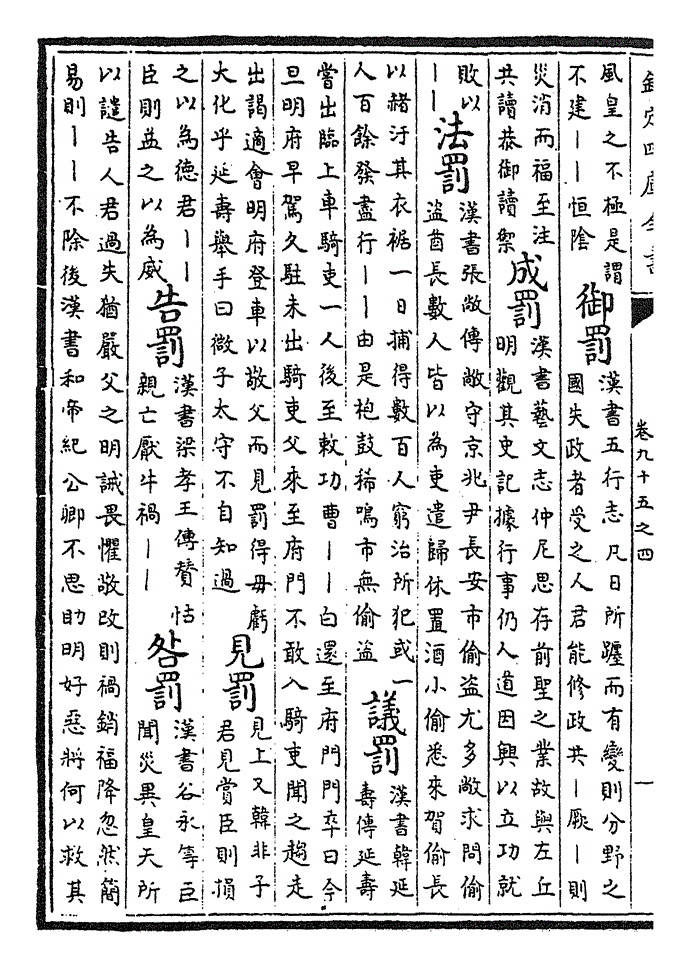 欽定四庫全書
卷九十五之四
一
風皇之不極是謂
不建——恒陰
御罰
漢書五行志凡日所躔而有變則分野之
國失政者受之人君能修政共—厥—則
災消而福至注
共讀恭御讀禦
成罰
漢書藝文志仲尼思存前聖之業故與左丘
明觀其史記據行事仍人道因興以立功就
敗以
——
法罰
漢書張敞傳敞守京兆尹長安市偷盜尤多敞求問偷
盜酋長數人皆以為吏遣歸休置酒小偷悉來賀偷長
以赭汙其衣裾一日捕得數百人窮治所犯或一
人百餘發盡行——由是枹鼓稀鳴市無偷盜
議罰
漢書韓延
壽傳延壽
嘗出臨上車騎吏一人後至敕功曹——白還至府門門卒曰今
旦明府早駕久駐未出騎吏父來至府門不敢入騎吏聞之趨走
出謁適會明府登車以敬父而見罰得毋虧
大化乎延壽舉手曰微子太守不自知過
見罰
見上又韓非子
君見賞臣則損
之以為德君——
臣則益之以為威
告罰
漢書梁孝王傳贊怙
親亡厭牛禍——
咎罰
漢書谷永等臣
聞災異皇天所
以譴告人君過失猶嚴父之明誡畏懼敬改則禍銷福降忽然簡
易則——不除後漢書和帝紀公卿不思助明好惡將何以救其